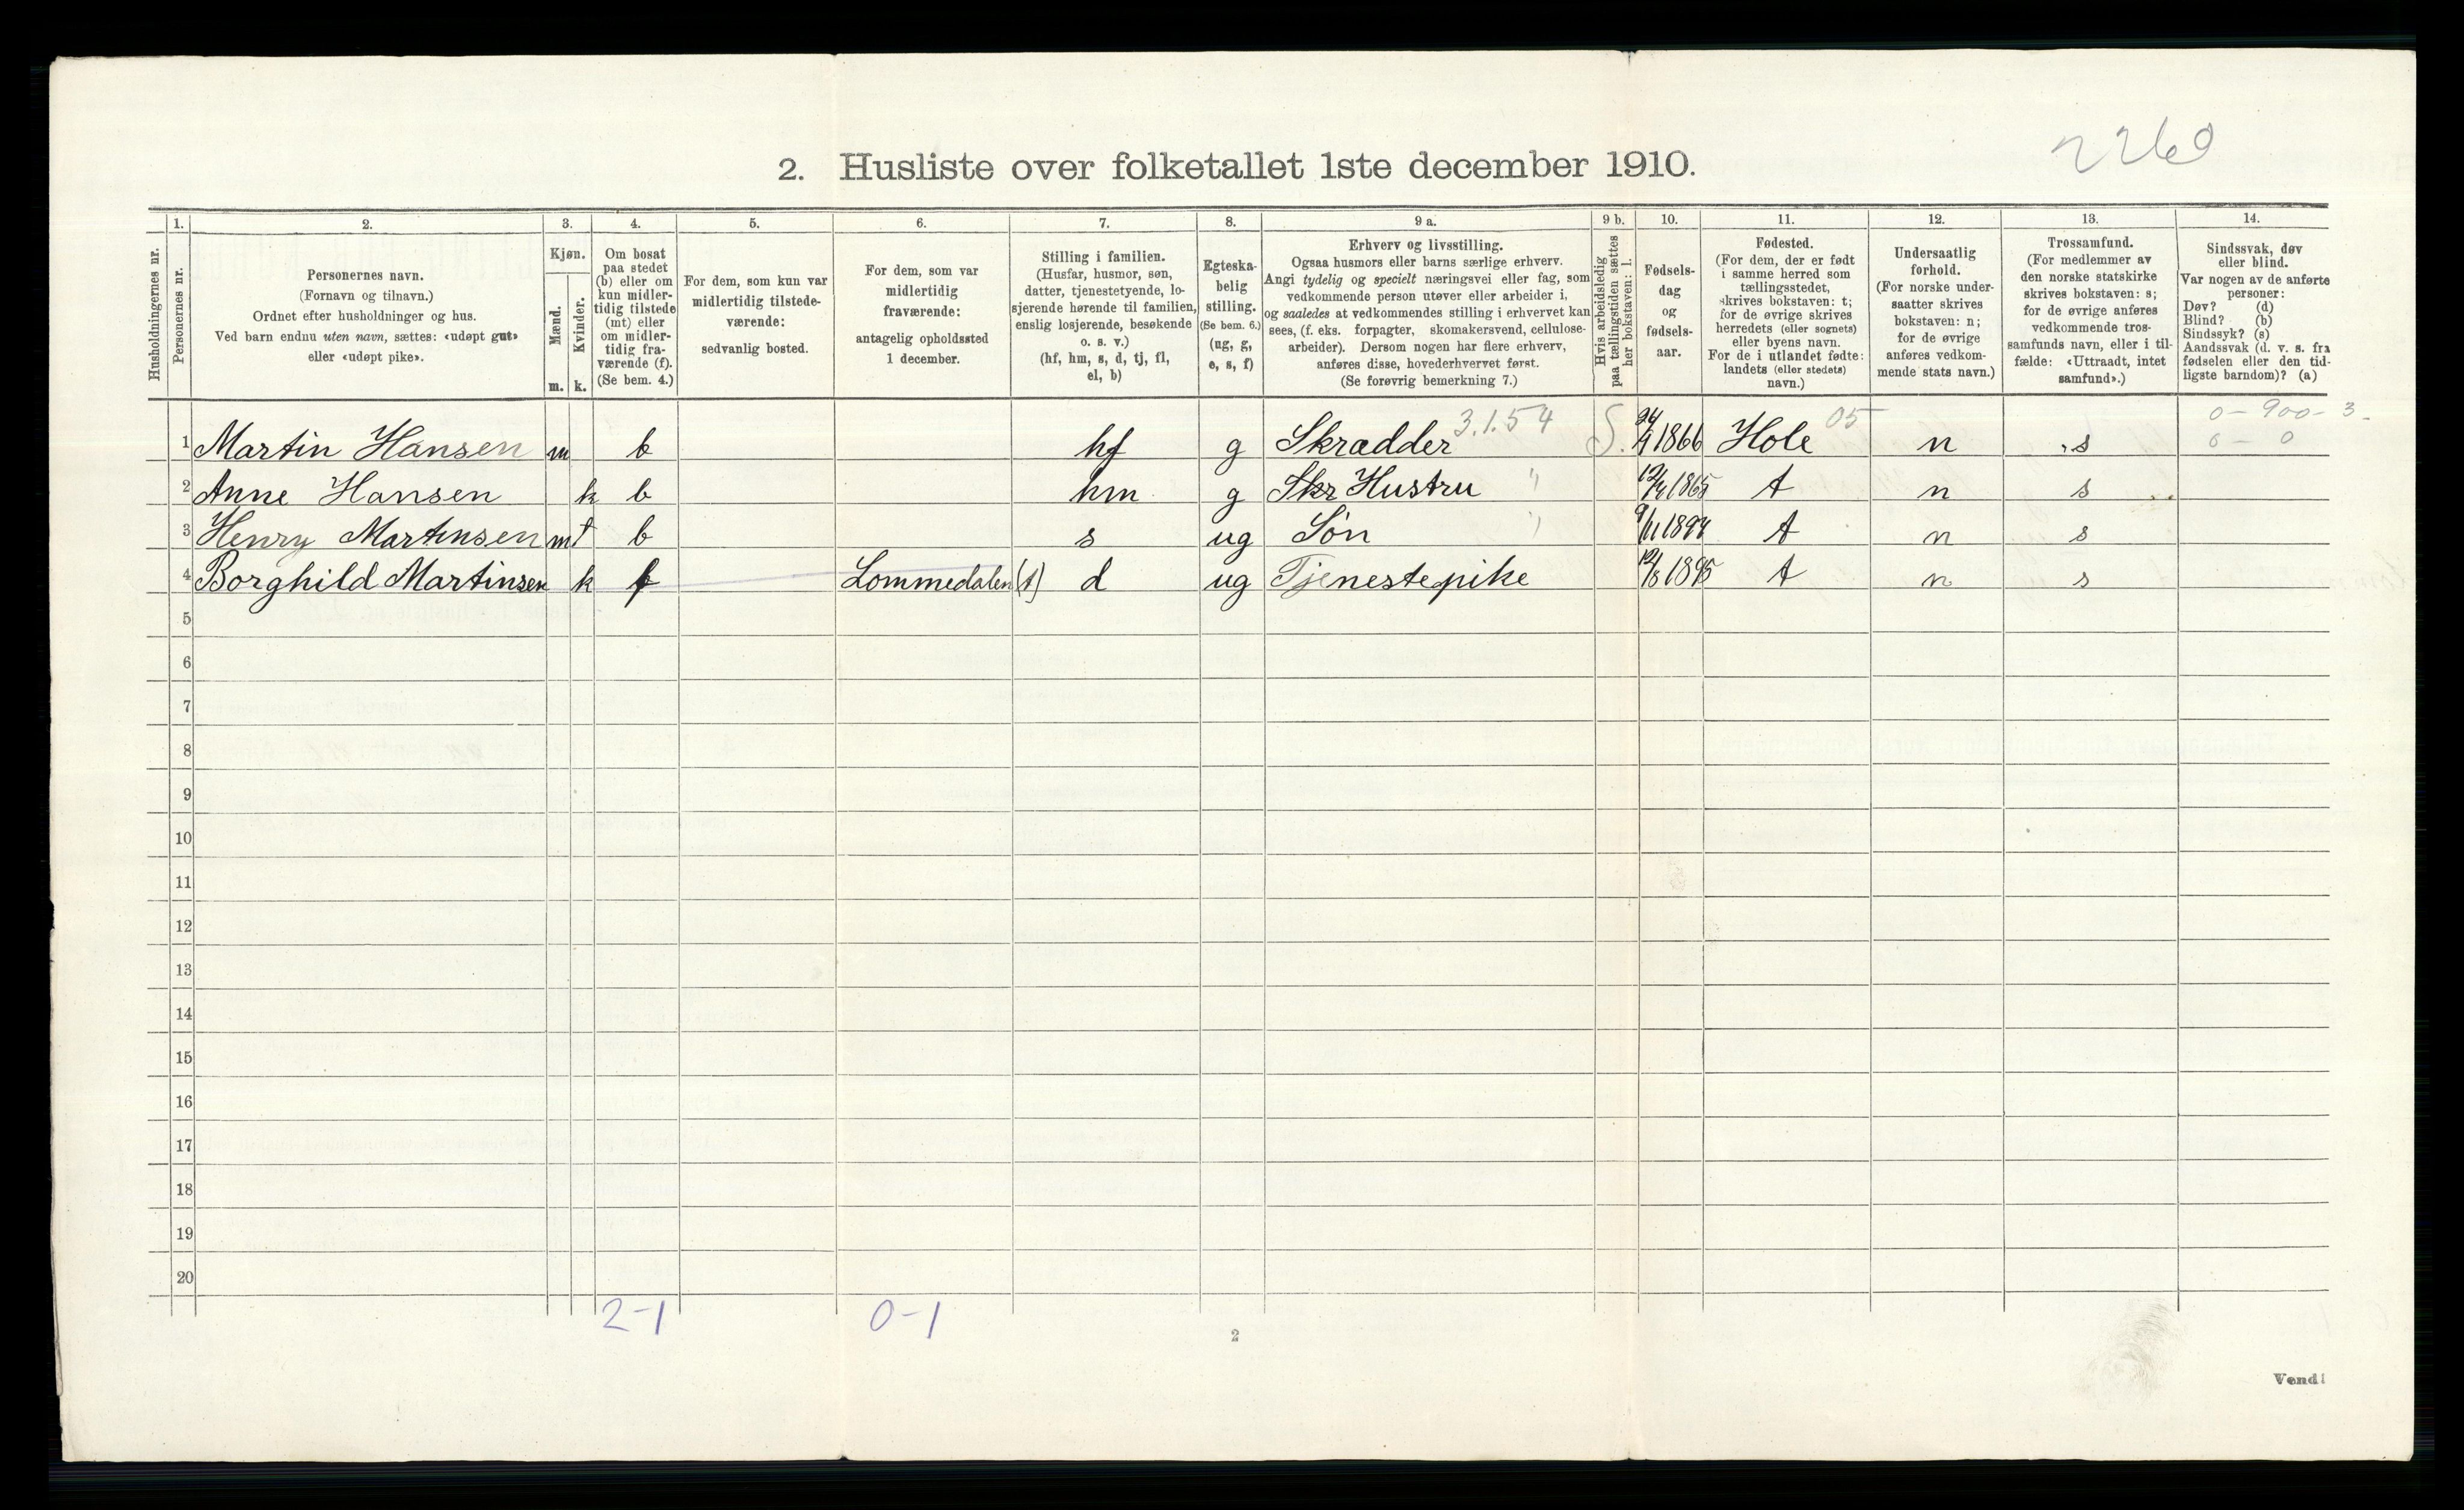 2260
2. Husliste over folketallet 1ste december 1910.
Husholdningernes nr.
1. Personernes nr.
2. Personernes navn.
(Fornavn og tilnavn.)
Ordnet efter husholdninger og hus.
Ved barn endnu uten navn, sættes: «udøpt gut»
eller «udøpt pike».
3. Kjøn.
Mænd. m.
Kvinder. k.
4. Om bosat
paa stedet
(b) eller om
kun midler-
tidig tilstede
(mt) eller
om midler-
tidig fra-
værende (f).
(Se bem. 4.)
5. For dem, som kun var
midlertidig tilstede-
værende:
sedvanlig bosted.
6. For dem, som var
midlertidig
fraværende:
antagelig opholdssted
1 december.
7. Stilling i familien.
(Husfar, husmor, søn,
datter, tjenestetyende, lo-
sjerende hørende til familien,
enslig losjerende, besøkende
o. s. v.)
(hf, hm, s, d, tj, fl,
el, b)
8. Egteska-
belig
stilling.
(Se bem. 6.)
(ug, g,
e, s, f)
9 a. Erhverv og livsstilling.
Ogsaa husmors eller barns særlige erhverv.
Angi tydelig og specielt næringsvei eller fag, som
vedkommende person utøver eller arbeider i,
og saaledes at vedkommendes stilling i erhvervet kan
sees, (f. eks. forpagter, skomakersvend, cellulose-
arbeider). Dersom nogen har flere erhverv,
anføres disse, hovederhvervet først.
(Se forøvrig bemerkning 7.)
9 b. Hvis arbeidsledig
paa tællingstiden sættes
her bokstaven: l.
10. Fødsels-
dag
og
fødsels-
aar.
11. Fødested.
(For dem, der er født
i samme herred som
tællingsstedet,
skrives bokstaven: t;
for de øvrige skrives
herredets (eller sognets)
eller byens navn.
For de i utlandet fødte:
landets (eller stedets)
navn.)
12. Undersaatlig
forhold.
(For norske under-
saatter skrives
bokstaven: n;
for de øvrige
anføres vedkom-
mende stats navn.)
13. Trossamfund.
(For medlemmer av
den norske statskirke
skrives bokstaven: s;
for de øvrige anføres
vedkommende tros-
samfunds navn, eller i til-
fælde: «Uttraadt, intet
samfund».)
14. Sindssvak, døv
eller blind.
Var nogen av de anførte
personer:
Døv? (d)
Blind? (b)
Sindssyk? (s)
Aandssvak (d. v. s. fra
fødselen eller den tid-
ligste barndom)? (a)
3.1.54 05 0-900-3-
1 Martin Hansen m b hf g Skrædder S. 1866 Hole n s 0-0
2 Anne Hansen k b hm g Skr Hustru " 1865 t n s
3 Henry Martinsen m t b s ug Søn " t n s
4 Borghild Martinsen k f Lommedalen (t) d ug Tjenestepike 1895 t n s
5
6
7
8
9
10
11
12
13
14
15
16
17
18
19
20
2-1 0-1
2
Vend!